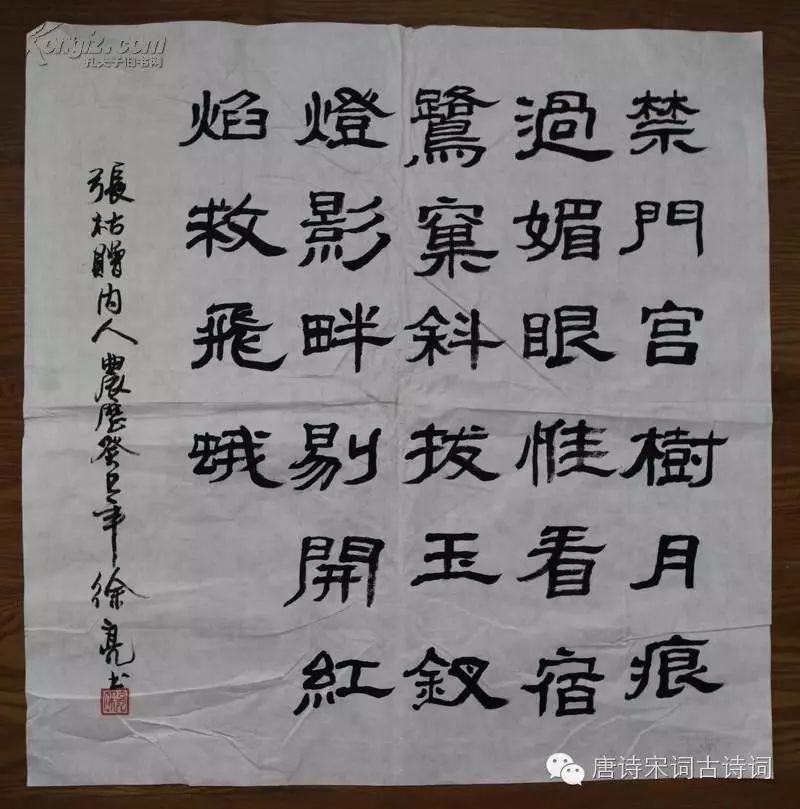 禁門宮樹月痕
過媚眼惟看宿
鷺窠斜拔玉釵
燈影畔剔開紅
焰救飛蛾
張枯贈內人農歷癸巳年徐亮书
Kongfz.com
孔夫子旧书网
唐诗宋词古诗词